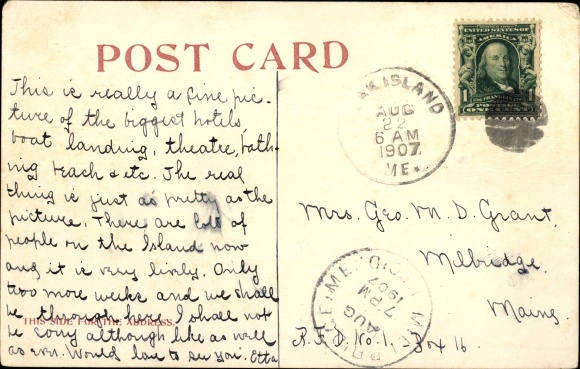 POST CARD
This is really a fine pic-
ture of the biggest hotels,
boat landing, theatre, bath-
ing beach & etc. The real
thing is just as pretty as the
picture. There are lots of
people on the Island now
and it is very lively. Only
two more weeks and we shall
be through here. I shall not
be sorry although like as well
as ever. Would love to see you. Etta
THIS SIDE FOR THE ADDRESS.
ISLAND
AUG
22
6 AM
1907
ME.
UNITED STATES OF
AMERICA
1 1
Mrs. Geo. M. D. Grant,
Milbridge,
Maine,
R. F. D. No. 1. Box 16.
AUG
7 PM
1907
ME.